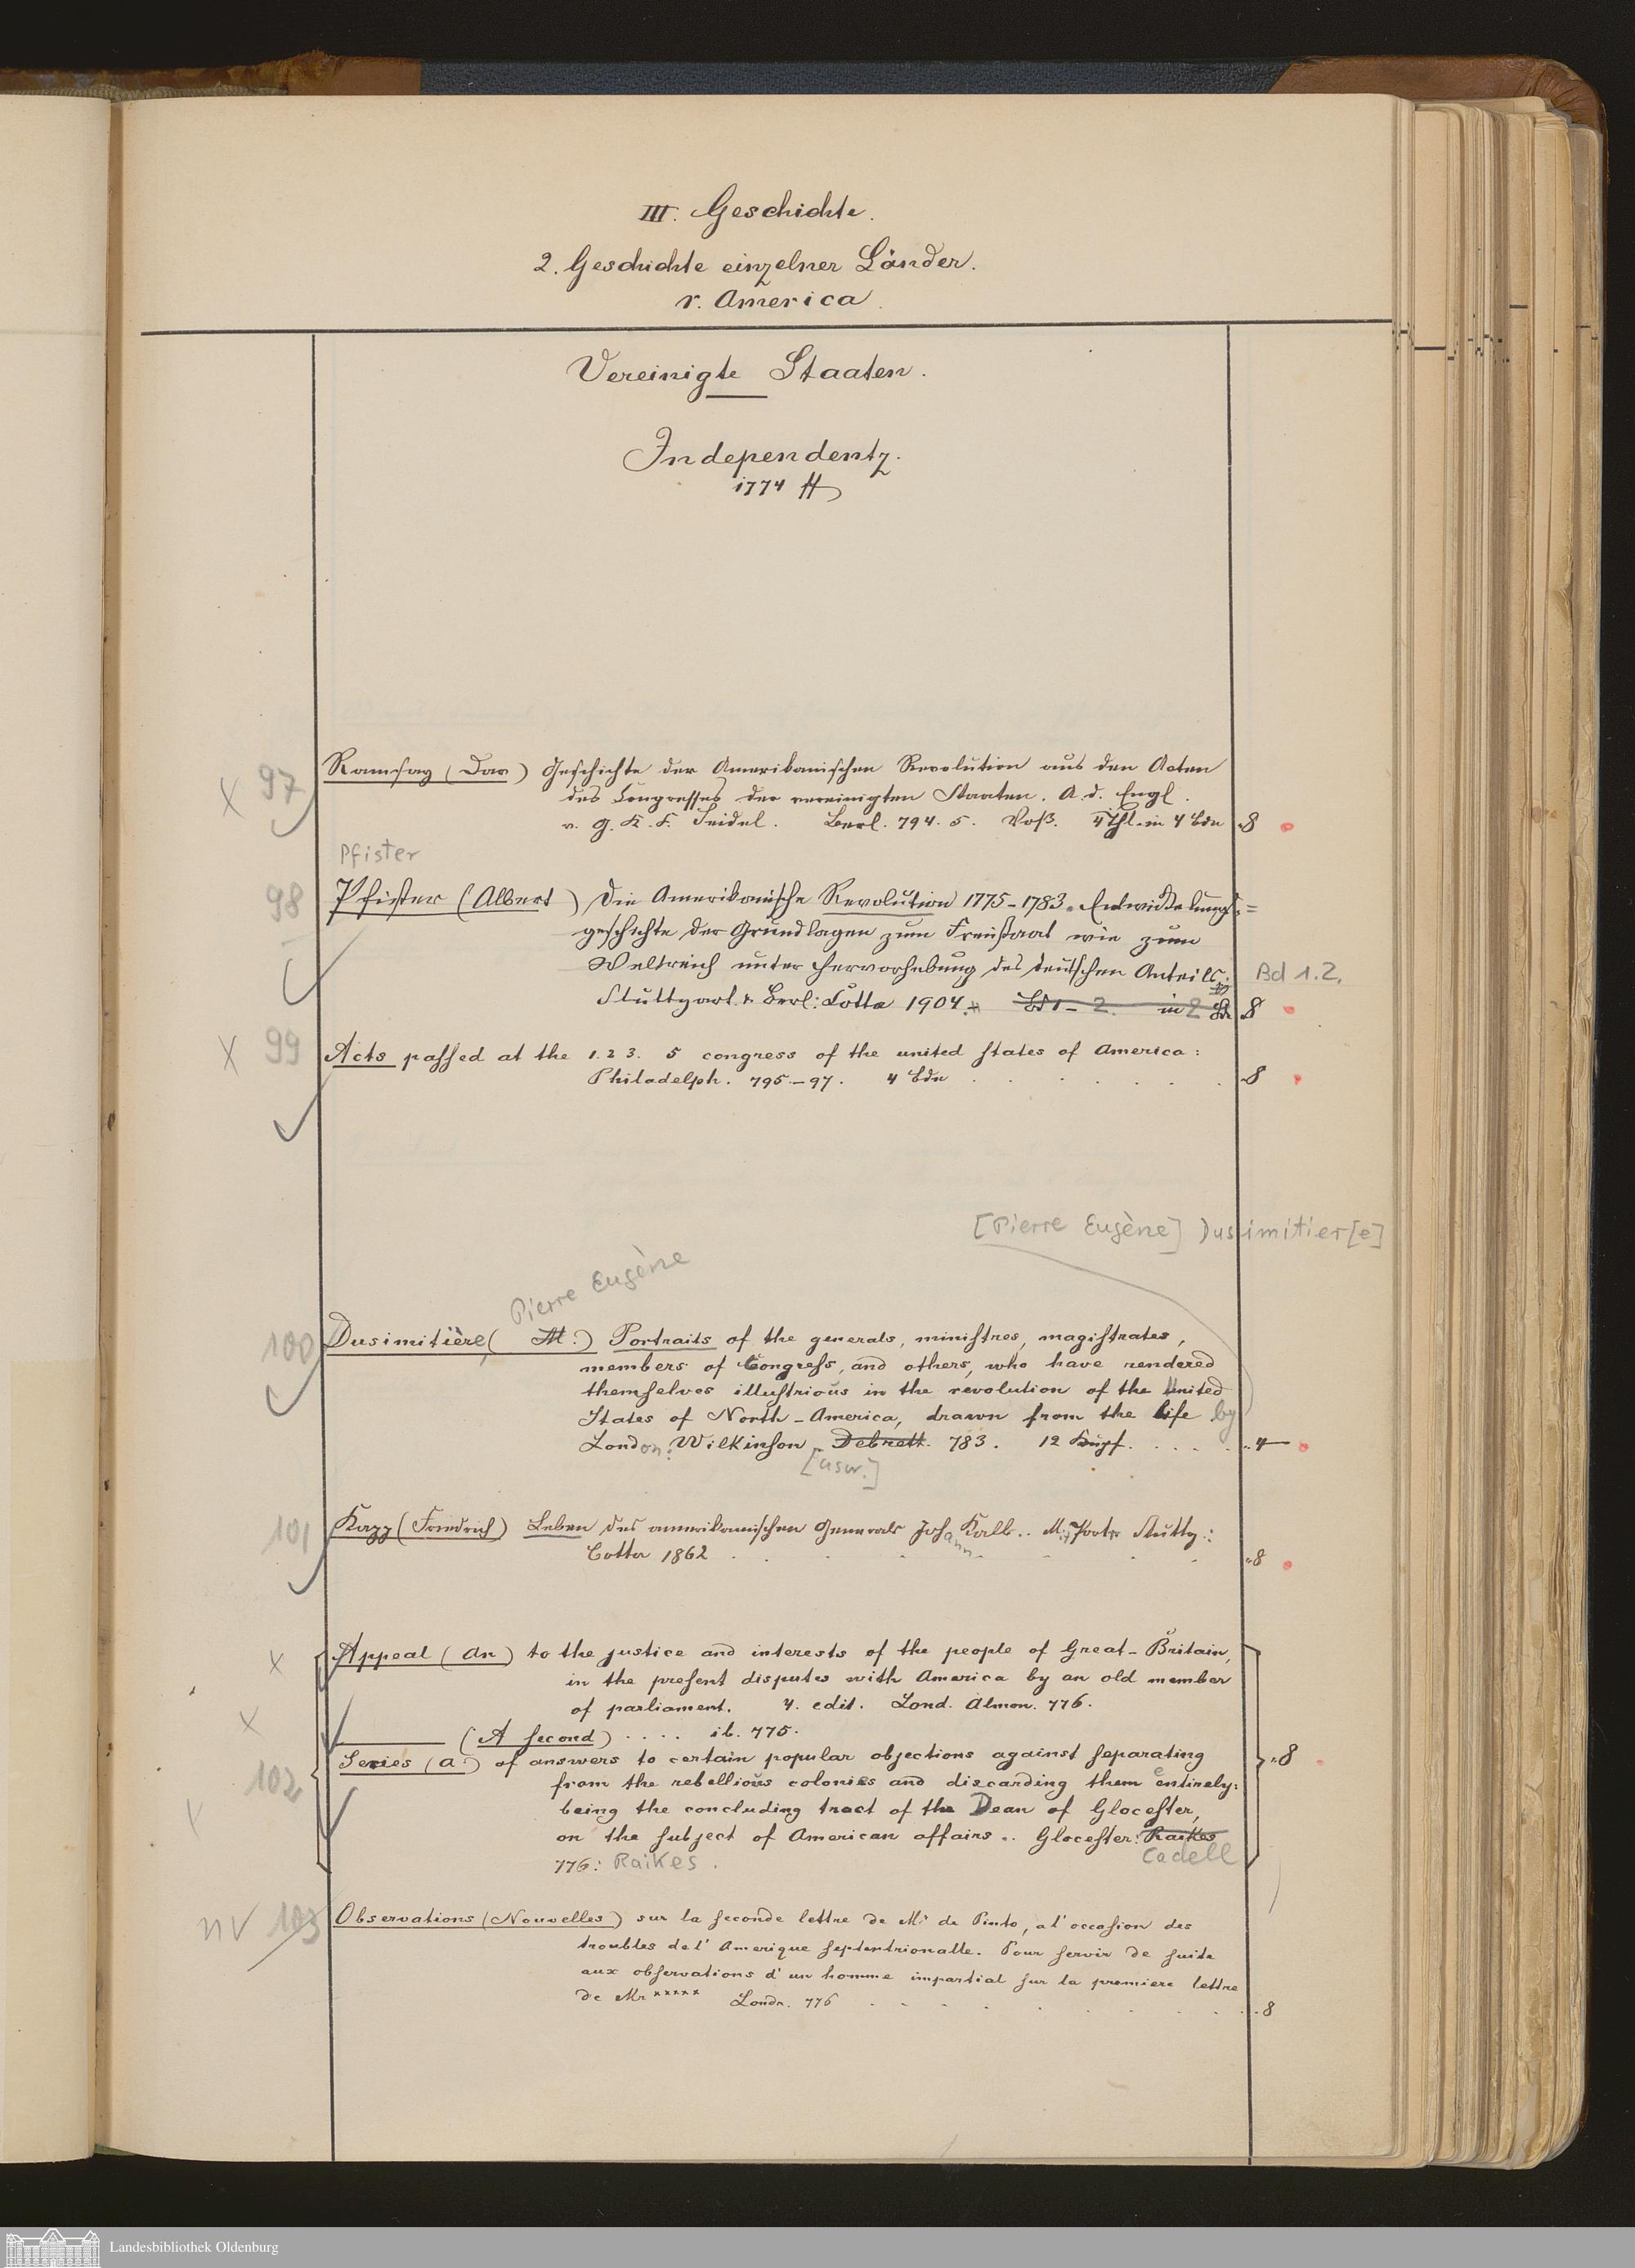 III. Geschichte.
2. Geschichte einzelner Länder.
r. America.
Vereinigte Staaten.
Independentz.
1774 ff
X 97 Ramsay (Dav) Geschichte der Amerikanischen Revolution aus den Acten
des Congresses der vereinigten Staaten. A. d. Engl.
v. G. K. F. Seidel. Berl. 794. 5. Voß. 4 Thl. in 4 Bdn 8
Pfister
98 Pfister (Albert) Die Amerikanische Revolution 1775-1783. Entwickelungs=
geschichte der Grundlagen zum Freistaat wie zum
Weltreich unter Hervorhebung des deutschen Anteils: Bd 1.2.
Stuttgart & Berl: Cotta 1904. Bd 1-2. in 2 8
X 99 Acts passed at the 1. 2 3. 5 congress of the united states of America:
Philadelph. 795-97. 4 Bde 8
[Pierre Eugène] Dusimitier[e]
Pierre Eugène
100 Dusimitière( M.) Portraits of the generals, ministres, magistrates,
members of Congress, and others, who have rendered
themselves illustrious in the revolution of the United
States of North-America, drawn from the life by
London: Wilkinson Debrett. 783. 12 Kupf. 4
[usw.]
101 Kapp (Friedrich) Leben des amerikanischen Generals Johann Kalb.. Mit Portr Stuttg.:
Cotta 1862 8
X Appeal (An) to the justice and interests of the people of Great-Britain,
in the present disputes with America by an old member
of parliament. 4. edit. Lond. Almon. 776.
X (A second) .... ib. 775.
102 Series (a.) of answers to certain popular objections against separating 8
from the rebellious colonies and discarding them entirely:
X being the concluding tract of the Dean of Glocester,
on the subject of American affairs.. Glocester: Raikes
776: Raikes. Cadell
nv 103 Observations (Nouvelles) sur la seconde lettre de Mr de Pinto, a l'occasion des
troubles de l' Amerique septentrionalle. Pour servir de suite
aux observations d' un homme impartial sur la premiere lettre
de Mr ***** Londr. 776 8
Landesbibliothek Oldenburg